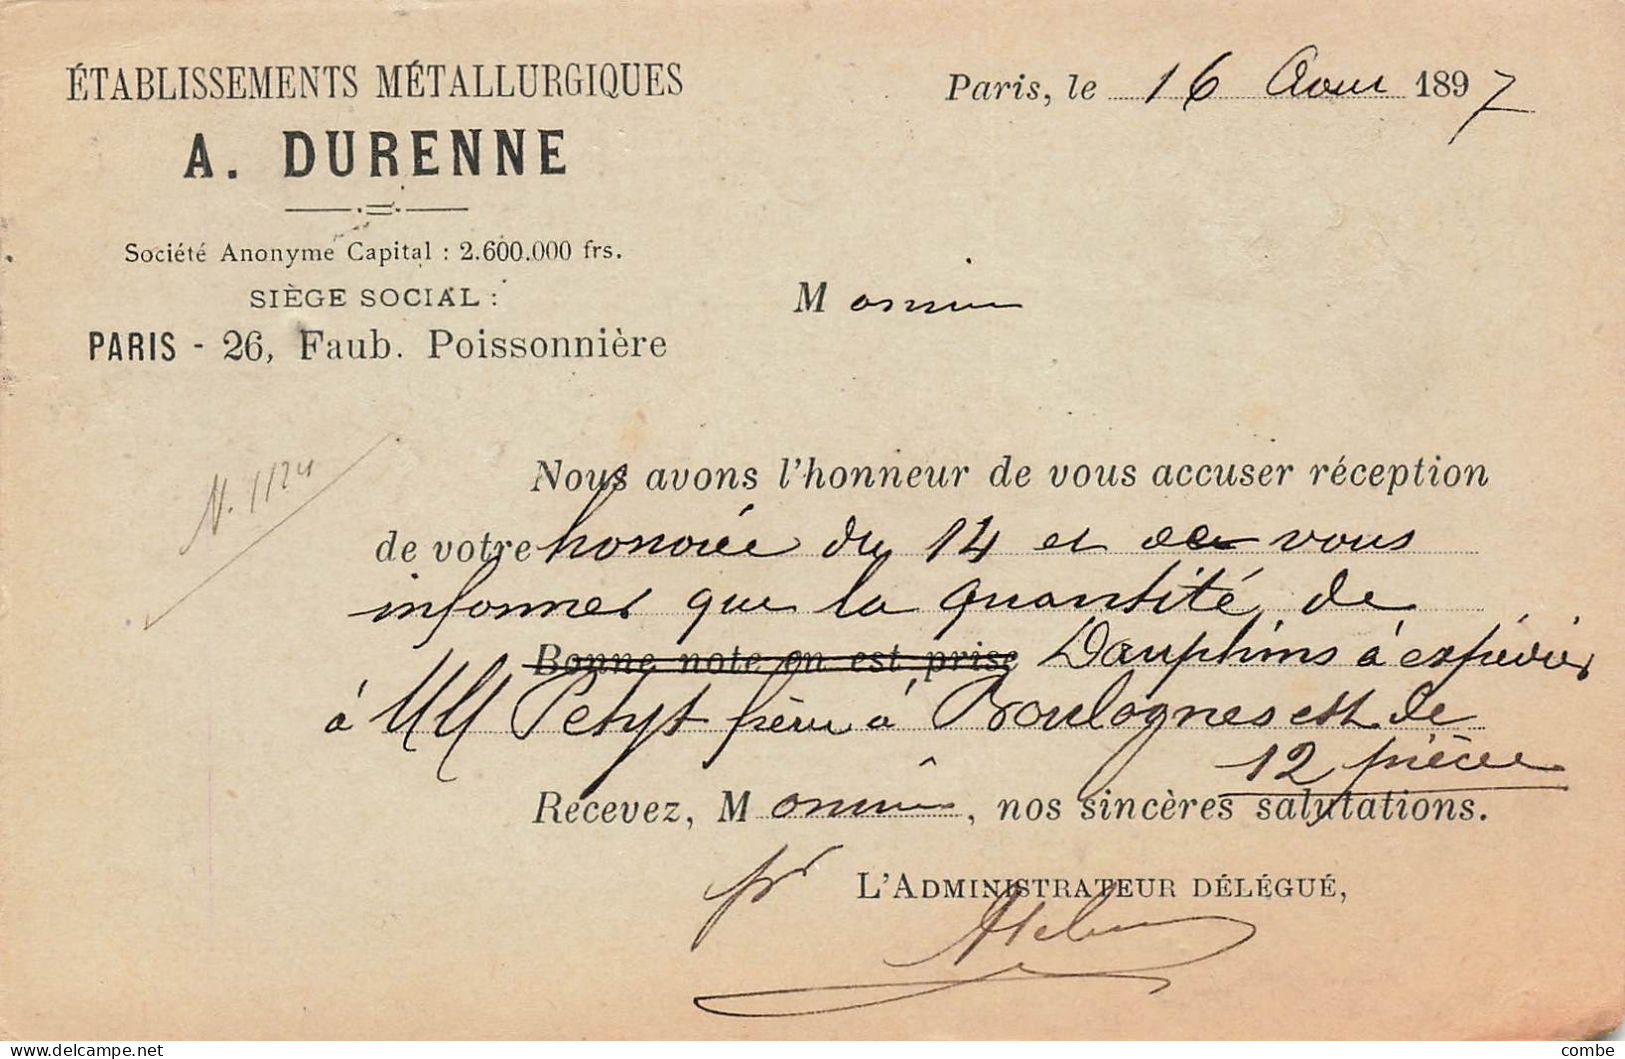 ÉTABLISSEMENTS MÉTALLURGIQUES
A. DURENNE
Société Anonyme Capital : 2.600.000 frs.
SIÈGE SOCIAL :
PARIS - 26, Faub. Poissonnière
Paris, le 16 Aout 1897
Monsieur
N. 1124
Nous avons l'honneur de vous accuser réception
de votre honorée du 14 et de vous
informer que la quantité de
Bonne note en est prise Dauphins à expédier
à MM Petyt frères à Boulogne est de
12 pièces
Recevez, Monsieur, nos sincères salutations.
pr L'ADMINISTRATEUR DÉLÉGUÉ,
delcampe.net
combe